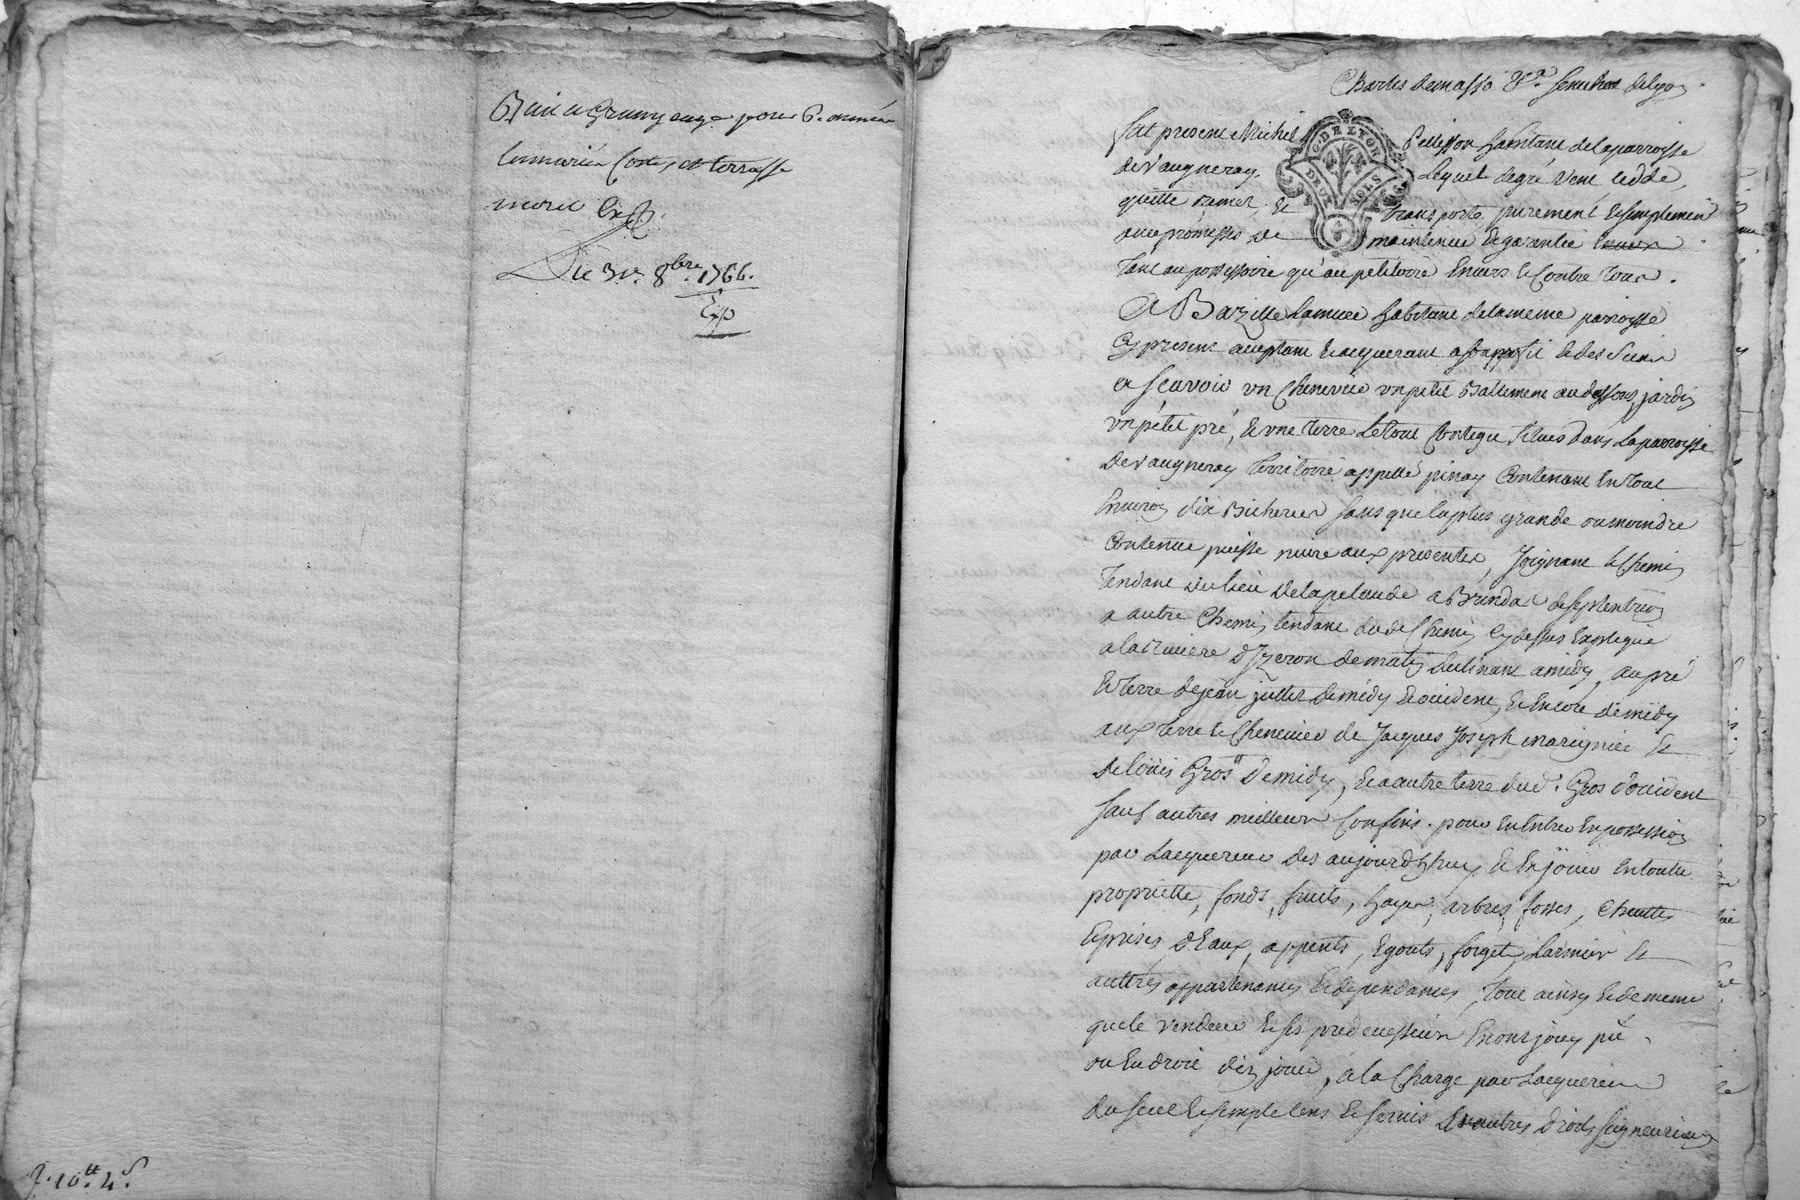 Bail a Grangeage pour
Costes et terrasse
Du 31e. 8bre. 1766.
Exp
J. 10tt. 4s.
Charles Demasso Sen.chal de Lyon
fut present Michel Pellisson habitant de la parroisse
de Vaugneray, Lequel de gré vent, cedde,
quitte remet, et transporte, purement et simplement
avec promesses de maintenue et garentie
tant au possessoire qu'au petitoire Envers et Contre tous.
A Bazille habitant de la meme parroisse
Cy present acceptant et acquerant a son proffit et des siens
a scavoir un Chenevier un petit Battiment au dessous, jardin
un pétit pré, et une terre Le tout Contegu situés dans La parroisse
de Vaugneray territoire appellé pinay Contenant En tout
Environ dix Bicherees sans que la plus grande ou moindre
Contenue puisse nuire aux presentes, Joignant le Chemin
tendant du lieu de la pelaude a Brindas de septentrion
a autre Chemin tendant dud. Chemin Cy dessus Expliqué
a la riviere d'Izeron de matin declinant a midy, au pré
et terre de jean de midy et occident, et Encore de midy
aux terre et Chenevier de Jacques Joseph marignier et
de loüis Gros de midy, et a autre terre dud. Gros d'occident
sauf autres meilleurs Confins. pour En Entrer En possession
par L'acquereur des aujourd'huy et En joüir En toutte
proprietté, fonds, fruits, hayes, arbres, fosses, Chuttes
et prises d'Eaux, appents, Egouts, forgets, Larmiers et
auttres appartenances et dependances, tout ainsy et de meme
que le vendeur et ses predecesseurs En ont jouy pû
ou En droit d'En joüir, a la Charge par L'acquereur
du seul et simple cens et servis et autres droits seigneuriaux